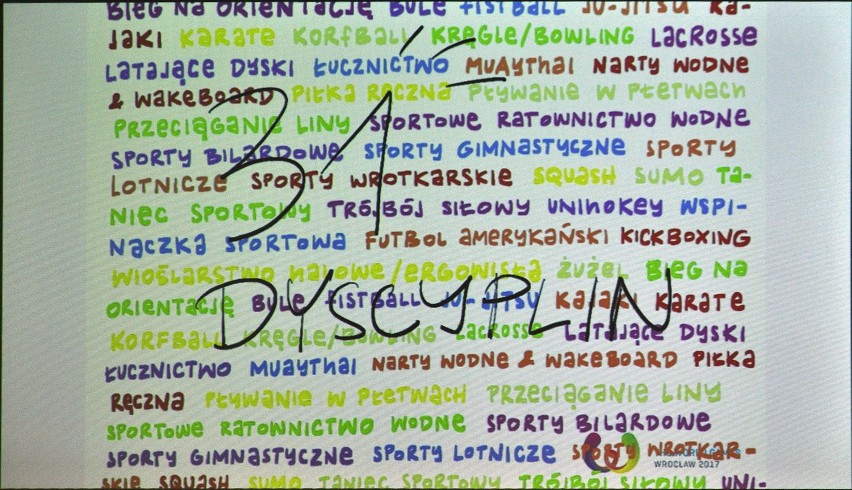 BIEG NA ORIENTACJĘ BULE FISTBALL JU-JITSU KA-
JAKI KARATE KORFBALL KRĘGLE/BOWLING LACROSSE
LATAJĄCE DYSKI ŁUCZNICTWO MUAYTHAI NARTY WODNE
& WAKEBOARD PIŁKA RĘCZNA PŁYWANIE W PŁETWACH
PRZECIĄGANIE LINY SPORTOWE RATOWNICTWO WODNE
SPORTY BILARDOWE SPORTY GIMNASTYCZNE SPORTY
LOTNICZE SPORTY WROTKARSKIE SQUASH SUMO TA-
NIEC SPORTOWY TRÓJBÓJ SIŁOWY UNIHOKEJ WSPI-
NACZKA SPORTOWA FUTBOL AMERYKAŃSKI KICKBOXING
WIOŚLARSTWO HALOWE/ERGOWIOSŁA ŻUŻEL BIEG NA
ORIENTACJĘ BULE FISTBALL JU-JITSU KAJAKI KARATE
KORFBALL KRĘGLE/BOWLING LACROSSE LATAJĄCE DYSKI
ŁUCZNICTWO MUAYTHAI NARTY WODNE & WAKEBOARD PIŁKA
RĘCZNA PŁYWANIE W PŁETWACH PRZECIĄGANIE LINY
SPORTOWE RATOWNICTWO WODNE SPORTY BILARDOWE
SPORTY GIMNASTYCZNE SPORTY LOTNICZE SPORTY WROTKAR-
SKIE SQUASH SUMO TANIEC SPORTOWY TRÓJBÓJ SIŁOWY UNI-
31
DYSCYPLIN
WROCŁAW 2017